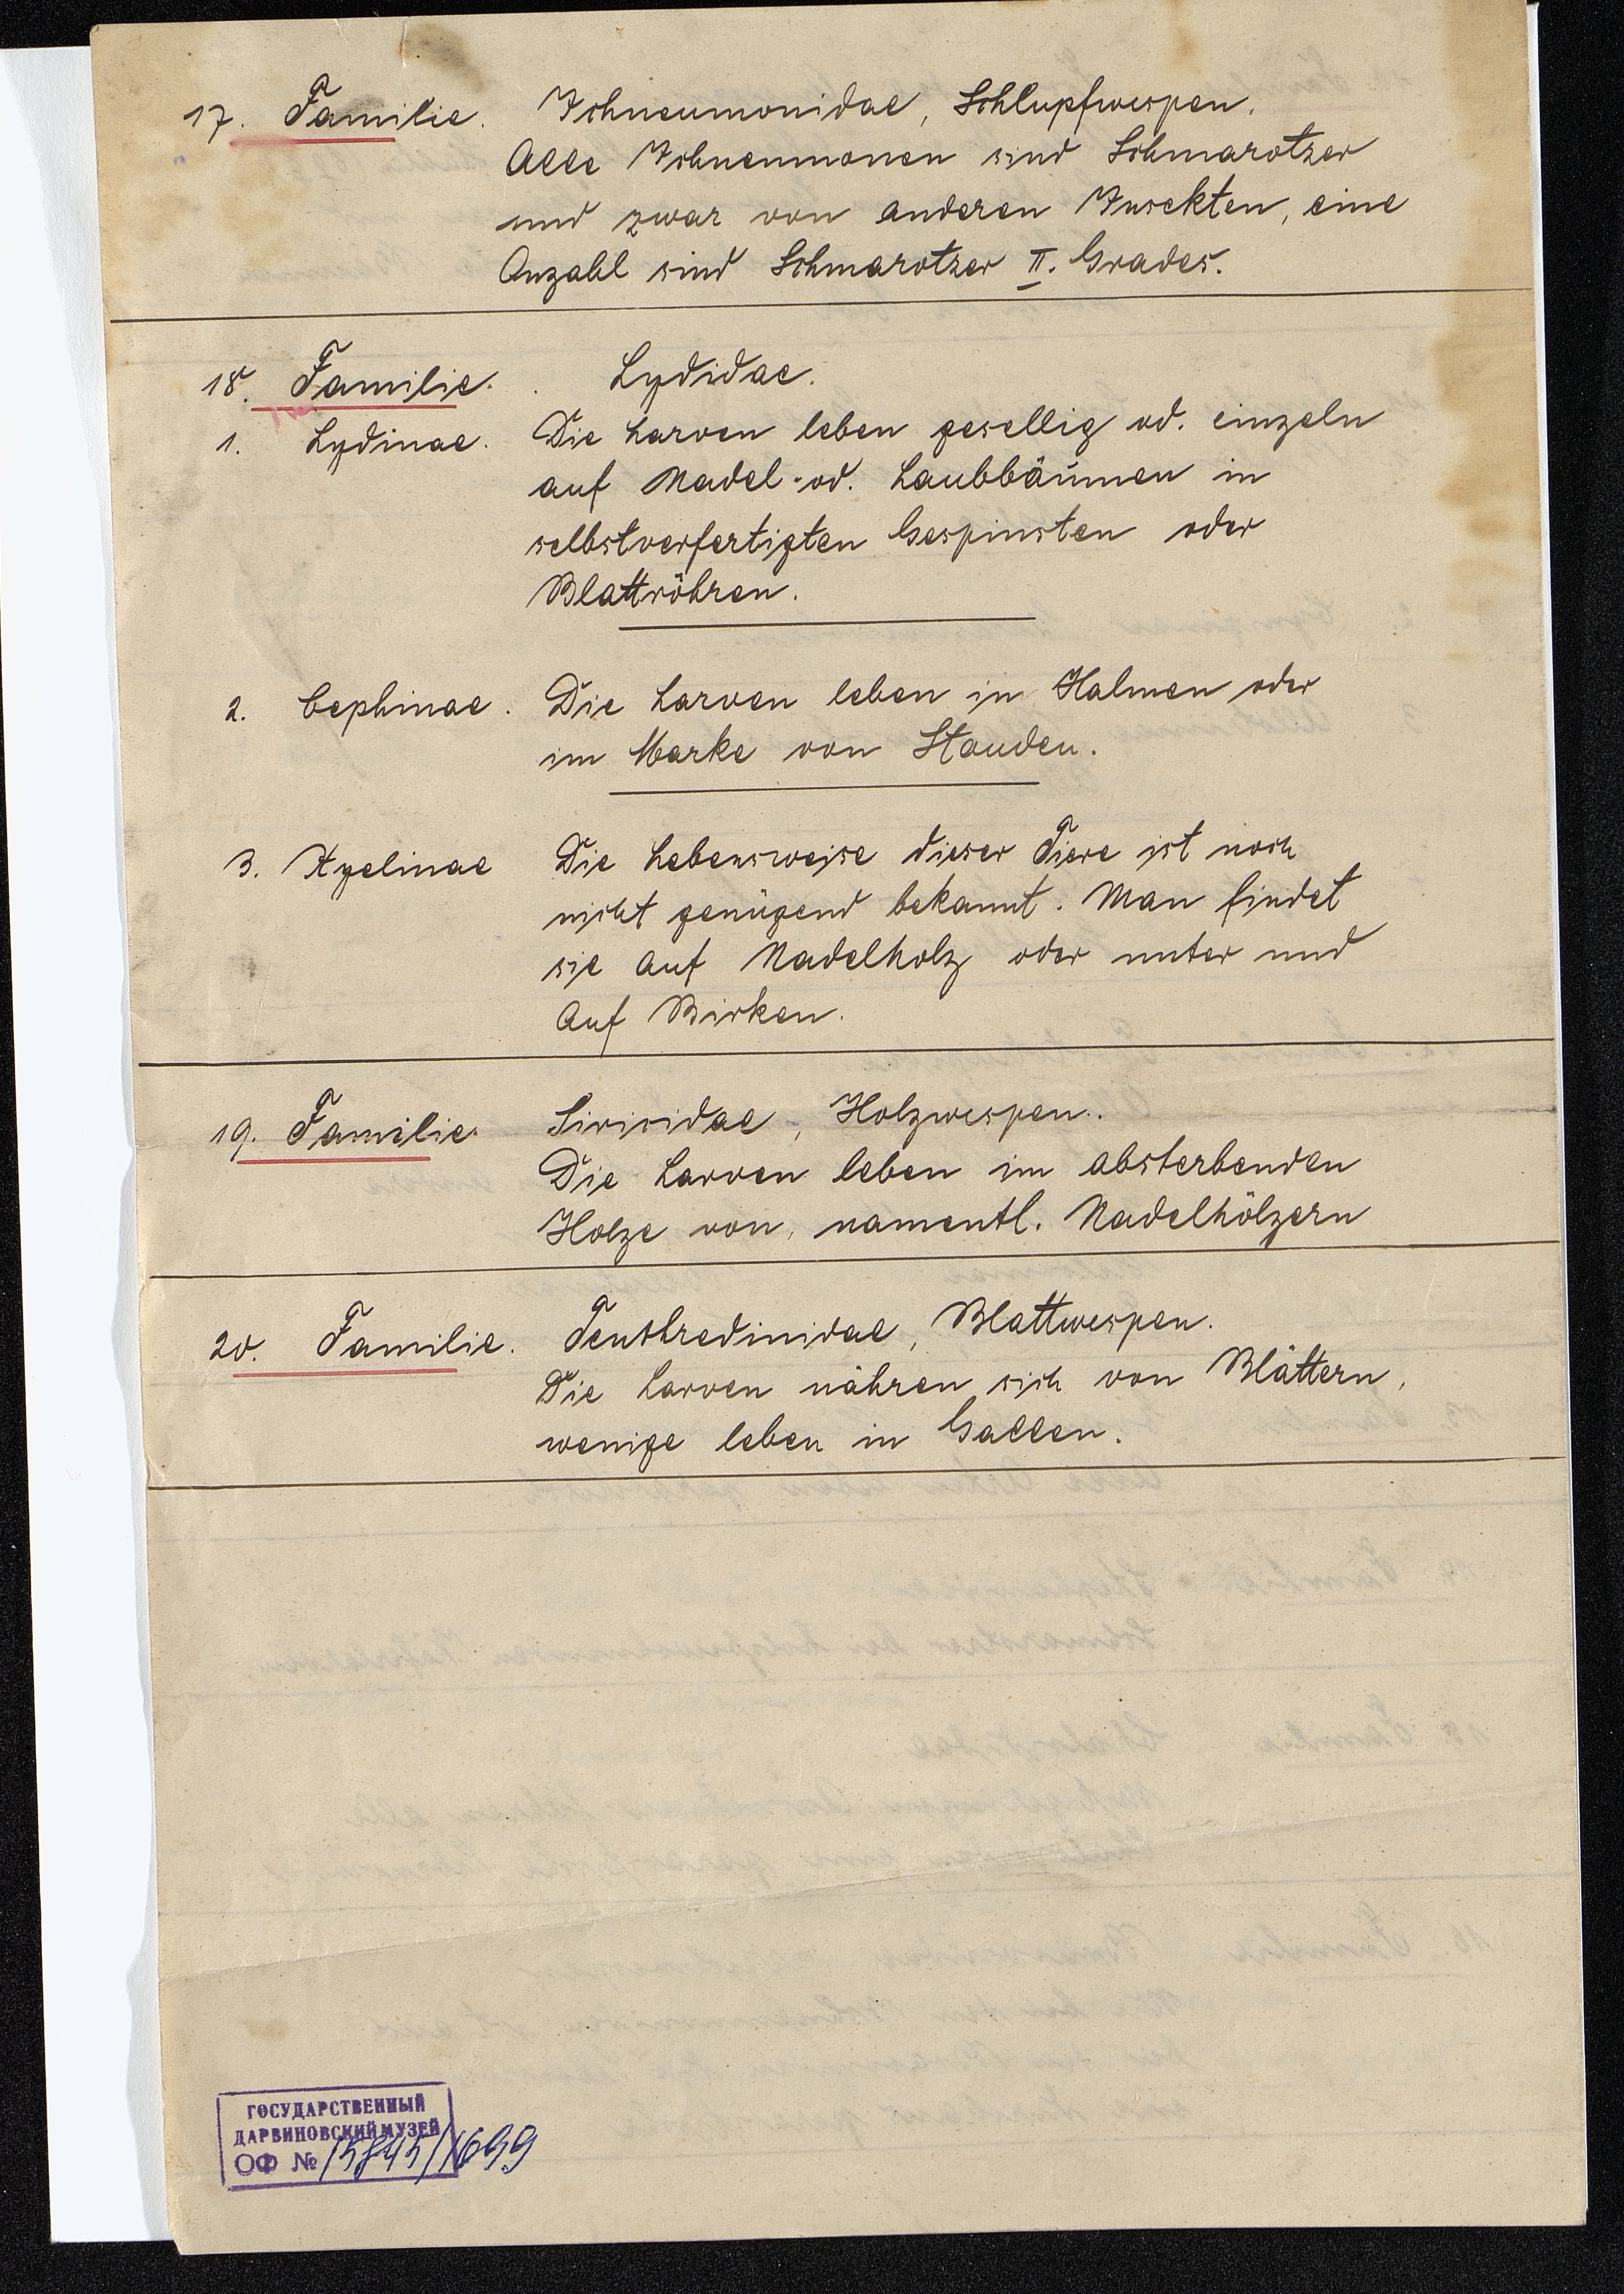 17. Familie. Ichneumonidae, Schlupfwespen.
Alle Ichneumonen sind Schmarotzer
und zwar von anderen Insekten, eine
Anzahl sind Schmarotzer II. Grades.
18. Familie. Lydidae.
1. Lydinae. Die Larven leben gesellig od. einzeln
auf Nadel-od. Laubbäumen in
selbstverfertigten Gespinsten oder
Blattröhren.
2. Cephinae. Die Larven leben in Halmen oder
im Marke von Stauden.
3. Xyelinae Die Lebensweise dieser Tiere ist noch
nicht genügend bekannt. Man findet
sie auf Nadelholz oder unter und
auf Birken.
19. Familie. Siricidae, Holzwespen.
Die Larven leben im absterbenden
Holze von, namentl. Nadelhölzern
20. Familie. Tenthredinidae, Blattwespen.
Die Larven nähren sich von Blättern,
wenige leben in Gallen.
ГОСУДАРСТВЕННЫЙ
ДАРВИНОВСКИЙ МУЗЕЙ
ОФ № 15845/1699